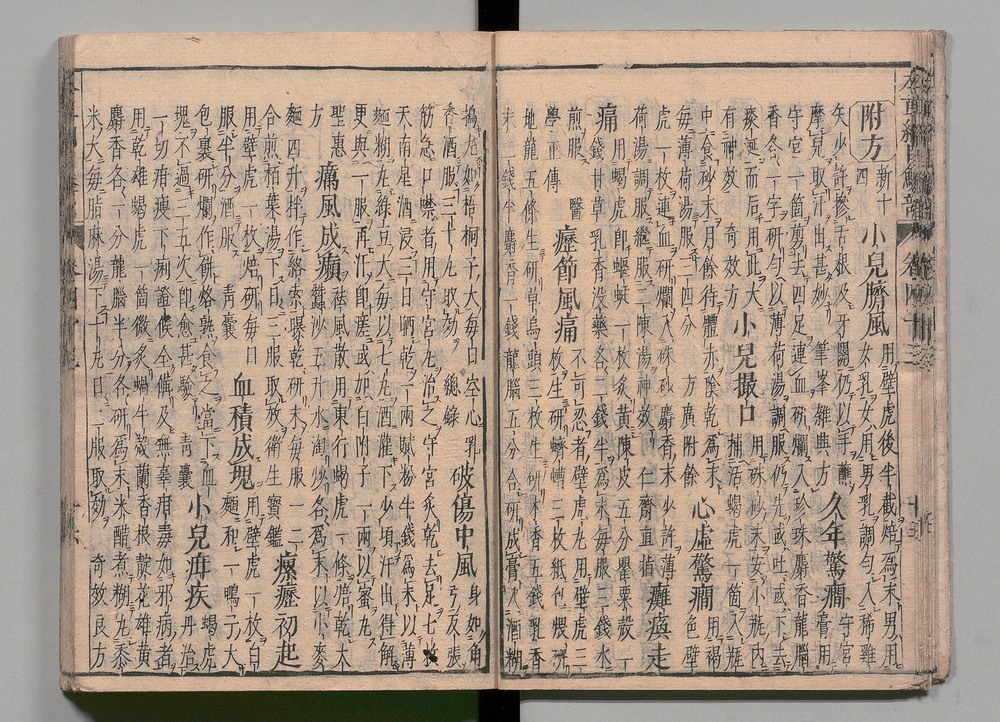 附方 新十四 小兒臍風 用壁虎後半截焙爲末男用女乳女用男乳調勻入稀雞
矢少許摻舌根及牙關仍以手蘸摩兒取汁出甚妙 筆峯雜興方 久年驚癇 守宮膏用
守宮一箇剪去四足連血研爛入珍珠麝香龍腦香各一字研勻以薄荷湯調服仍先或吐或下去
痰涎而后用此大有神效 奇效方 小兒撮口 用硃砂末安小瓶内捕活蝎虎一箇入瓶
中食砂末月餘待體赤陰乾爲末每薄荷湯服三四分 方廣附餘 心虛驚癇 用褐色壁
虎一枚連血研爛入硃砂麝香末少許薄荷湯調服繼服二陳湯神效 仁齋直指 癱瘓走
痛 用蝎虎即蝘蜓一枚炙黃陳皮五分罌粟殼一錢甘草乳香没藥各二錢半爲末每服三錢水
煎服 醫學正傳 癧節風痛 不可忍者壁虎丸用壁虎三枚生研蠐螬三枚紙包煨研
地龍五條生研草烏頭三枚生研木香五錢乳香末二錢半麝香一錢龍腦五分合研成膏入酒糊
搗丸如梧桐子大每日空心乳香酒服三十丸取效 總錄 破傷中風 身如角弓反張
筋急口噤者用守宮丸治之守宮炙乾去足七枚天南星酒浸三日晒乾一兩膩粉半錢爲末以薄
麵糊丸綠豆大每以七丸酒灌下少頃汗出得解更與一服再汗即瘥或加白附子一兩以蜜丸
聖惠方 癘風成癩 祛風散用東行蝎虎一條焙乾大蠶沙五升水淘炒各爲末以小麥
麵四升拌作絡索曝乾研末每服一二合煎栢葉湯下日三服取效 衛生寶鑑 瘰癧初起
用壁虎一枚焙研每日服半分酒服 青囊 血積成塊 用壁虎一枚白麵和一鴨子大
包裹研爛作餅烙熟食之當下血塊不過三五次即愈甚驗 青囊 小兒疳疾 蝎虎丹治
一切疳瘦下痢證候全備及無辜疳毒如邪病者用乾雄蝎虎一箇微炙蝸牛殼蘭香根靛花雄黃
麝香各一分龍腦半分各研爲末米醋煮糊丸黍米大每脂麻湯下十丸日二服取效 奇效良方